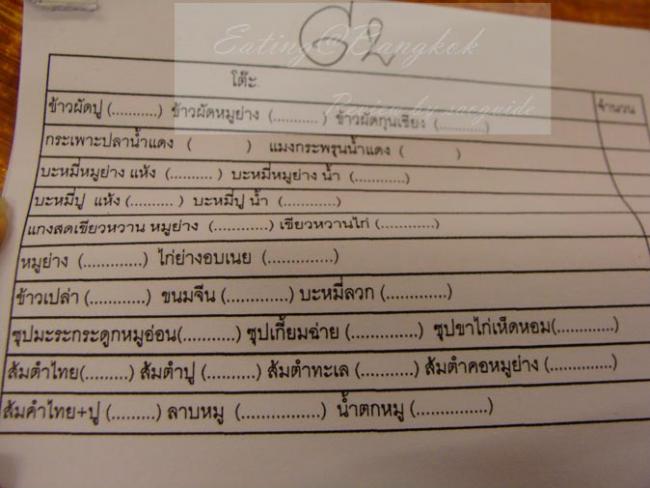 Eating@Bangkok
G2
โต๊ะ
จำนวน
ข้าวผัดปู (...........) ข้าวผัดหมูย่าง (...........) ข้าวผัดกุนเชียง (...........)
กระเพาะปลาน้ำแดง ( ) แมงกระพรุนน้ำแดง ( )
บะหมี่หมูย่าง แห้ง (..........) บะหมี่หมูย่าง น้ำ (............)
บะหมี่ปู แห้ง (..........) บะหมี่ปู น้ำ (............)
แกงสดเขียวหวาน หมูย่าง (............) เขียวหวานไก่ (............)
หมูย่าง (............) ไก่ย่างอบเนย (.............)
ข้าวเปล่า (............) ขนมจีน (.............) บะหมี่ลวก (.............)
ซุปมะระกระดูกหมูอ่อน(...........) ซุปเกี้ยมฉ่าย (..............) ซุปขาไก่เห็ดหอม(.............)
ส้มตำไทย(.........) ส้มตำปู (..........) ส้มตำทะเล (...........) ส้มตำคอหมูย่าง (..............)
ส้มคำไทย+ปู (.........) ลาบหมู (.................) น้ำตกหมู (...............)